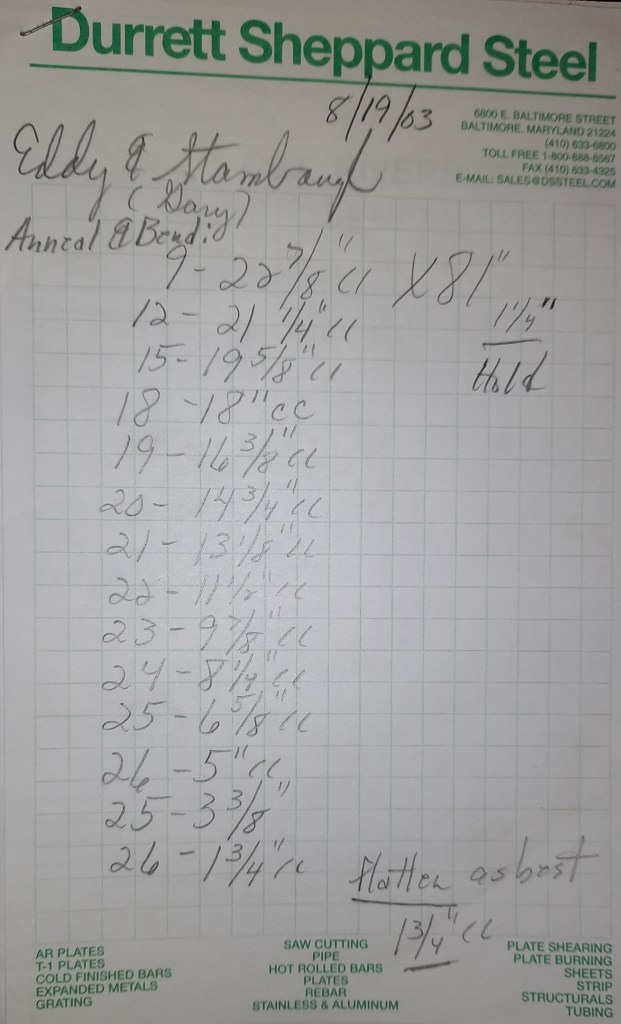 Durrett Sheppard Steel
8/19/03
6800 E. BALTIMORE STREET
BALTIMORE, MARYLAND 21224
(410) 633-6800
TOLL FREE 1-800-888-8567
FAX (410) 633-4325
E-MAIL: SALES@DSSTEEL.COM
Eddy & Stambaugh
(Gary)
Anneal & Bend:
9 - 22 7/8" cc X 81"
12 - 21 1/4" cc
1 1/4"
15 - 19 5/8" cc
Hold
18 - 18" cc
19 - 16 3/8" cc
20 - 14 3/4" cc
21 - 13 1/8" cc
22 - 11 1/2" cc
23 - 9 7/8" cc
24 - 8 1/4" cc
25 - 6 5/8" cc
26 - 5" cc
25 - 3 3/8"
26 - 1 3/4" cc
Flatten as best
1 3/4" cc
AR PLATES
T-1 PLATES
COLD FINISHED BARS
EXPANDED METALS
GRATING
SAW CUTTING
PIPE
HOT ROLLED BARS
PLATES
REBAR
STAINLESS & ALUMINUM
PLATE SHEARING
PLATE BURNING
SHEETS
STRIP
STRUCTURALS
TUBING